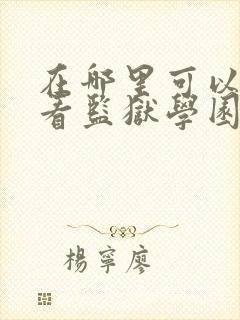 在哪里可以
看監獄學園
楊寧廖